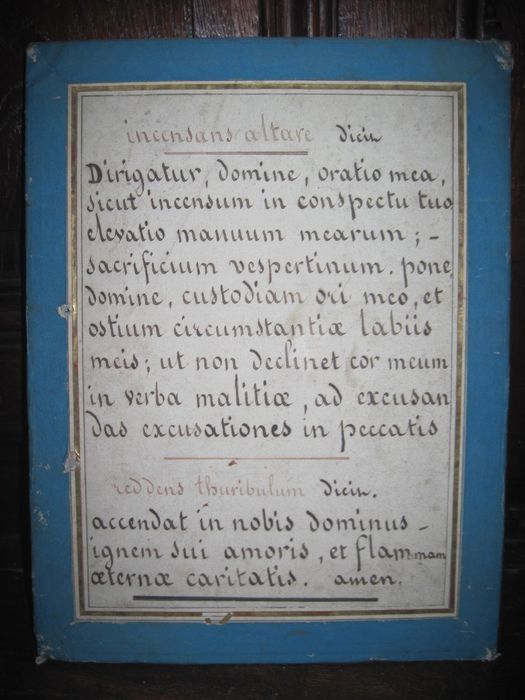 incensans altare dicit
Dirigatur, domine, oratio mea,
sicut incensum in conspectu tuo,
elevatio manuum mearum; -
sacrificium vespertinum. pone,
domine, custodiam ori meo, et
ostium circumstantiæ labiis
meis; ut non declinet cor meum
in verba malitiæ, ad excusan
das excusationes in peccatis
reddens thuribulum dicit.
accendat in nobis dominus -
ignem sui amoris, et flammam
æternæ caritatis. amen.